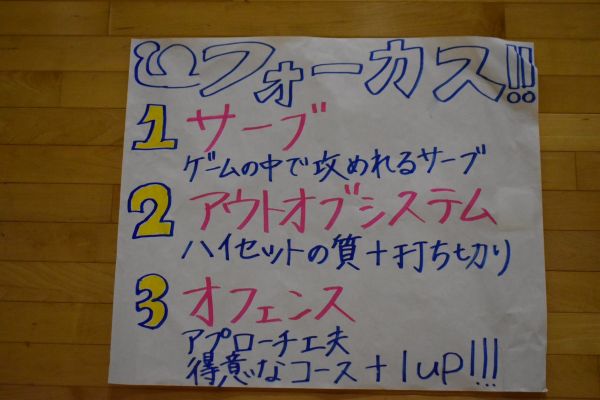 フォーカス!!
1 サーブ
ゲームの中で攻めれるサーブ
2 アウトオブシステム
ハイセットの質+打ち切り
3 オフェンス
アプローチ工夫
得意なコース+1up!!!